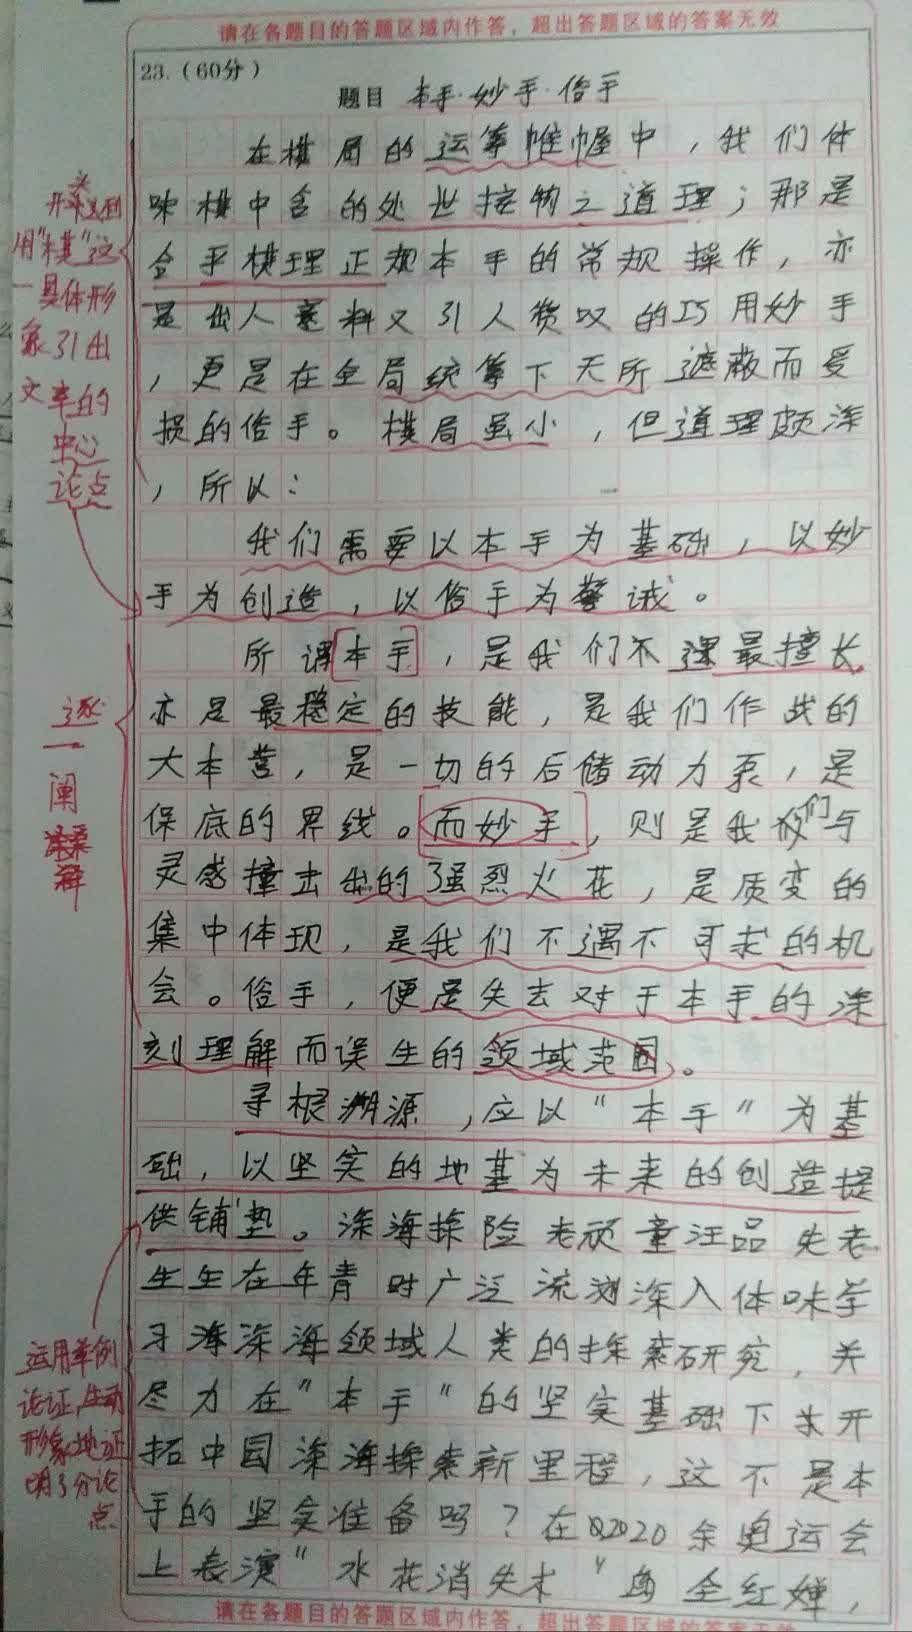 请在各题目的答题区域内作答，超出答题区域的答案无效
23.（60分）
题目 本手·妙手·俗手
在棋局的运筹帷幄中，我们体
味棋中含的处世接物之道理；那是
合乎棋理正规本手的常规操作，亦
是出人意料又引人赞叹的巧用妙手
，更是在全局统筹下无所遮蔽而受
损的俗手。棋局虽小，但道理颇深
，所以：
我们需要以本手为基础，以妙
手为创造，以俗手为警诫。
所谓本手，是我们不过最擅长
亦是最稳定的技能，是我们作战的
大本营，是一切的后储动力泵，是
保底的界线。而妙手，则是我们与
灵感撞击出的强烈火花，是质变的
集中体现，是我们不遇不可求的机
会。俗手，便是失去对于本手的深
刻理解而误生的领域范围。
寻根溯源，应以"本手"为基
础，以坚实的地基为未来的创造提
供铺垫。深海探险老顽童汪品先老
生生在年青时广泛浏深入体味学
习海深海领域人类的探索研究，并
尽力在"本手"的坚实基础下去开
拓中国深海探索新里程，这不是本
手的坚实准备吗？在2020余奥运会
上表演"水花消失术"的全红婵，
请在各题目的答题区域内作答，超出答题区域的答案无效
开头
用"棋"这
一具体形
象引出
文章的
中心
论点
逐
一
阐
释
运用举例
论证，生动
形象地证
明了分论
点